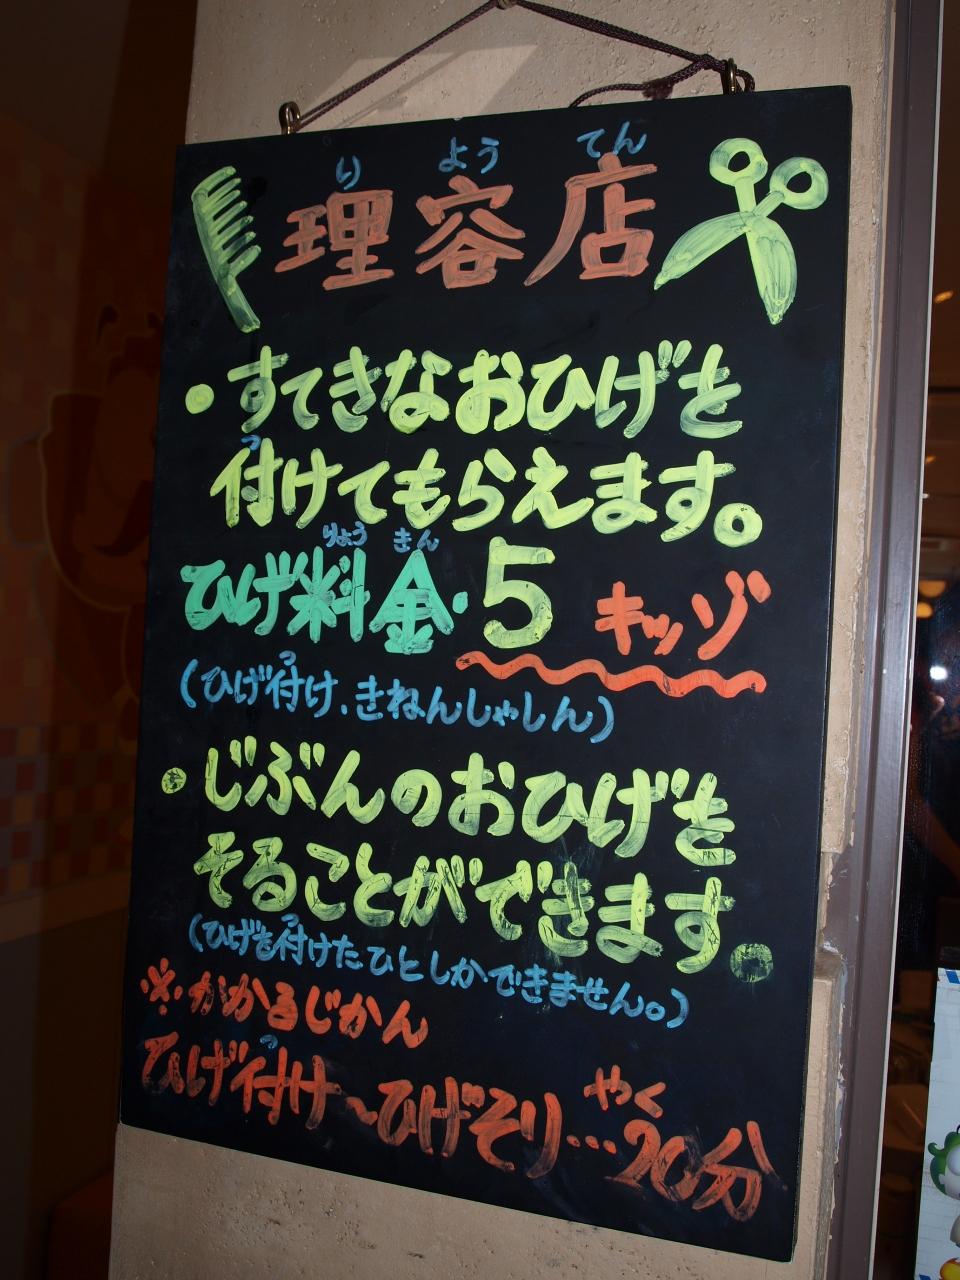 りようてん
理容店
・すてきなおひげを
付けてもらえます。
っ
りょうきん
ひげ料金・5キッゾ
っ
(ひげ付け、きねんしゃしん)
・じぶんのおひげを
そることができます。
っ
(ひげを付けたひとしかできません。)
※かかるじかん
っ
やく
ひげ付け〜ひげそり…20分